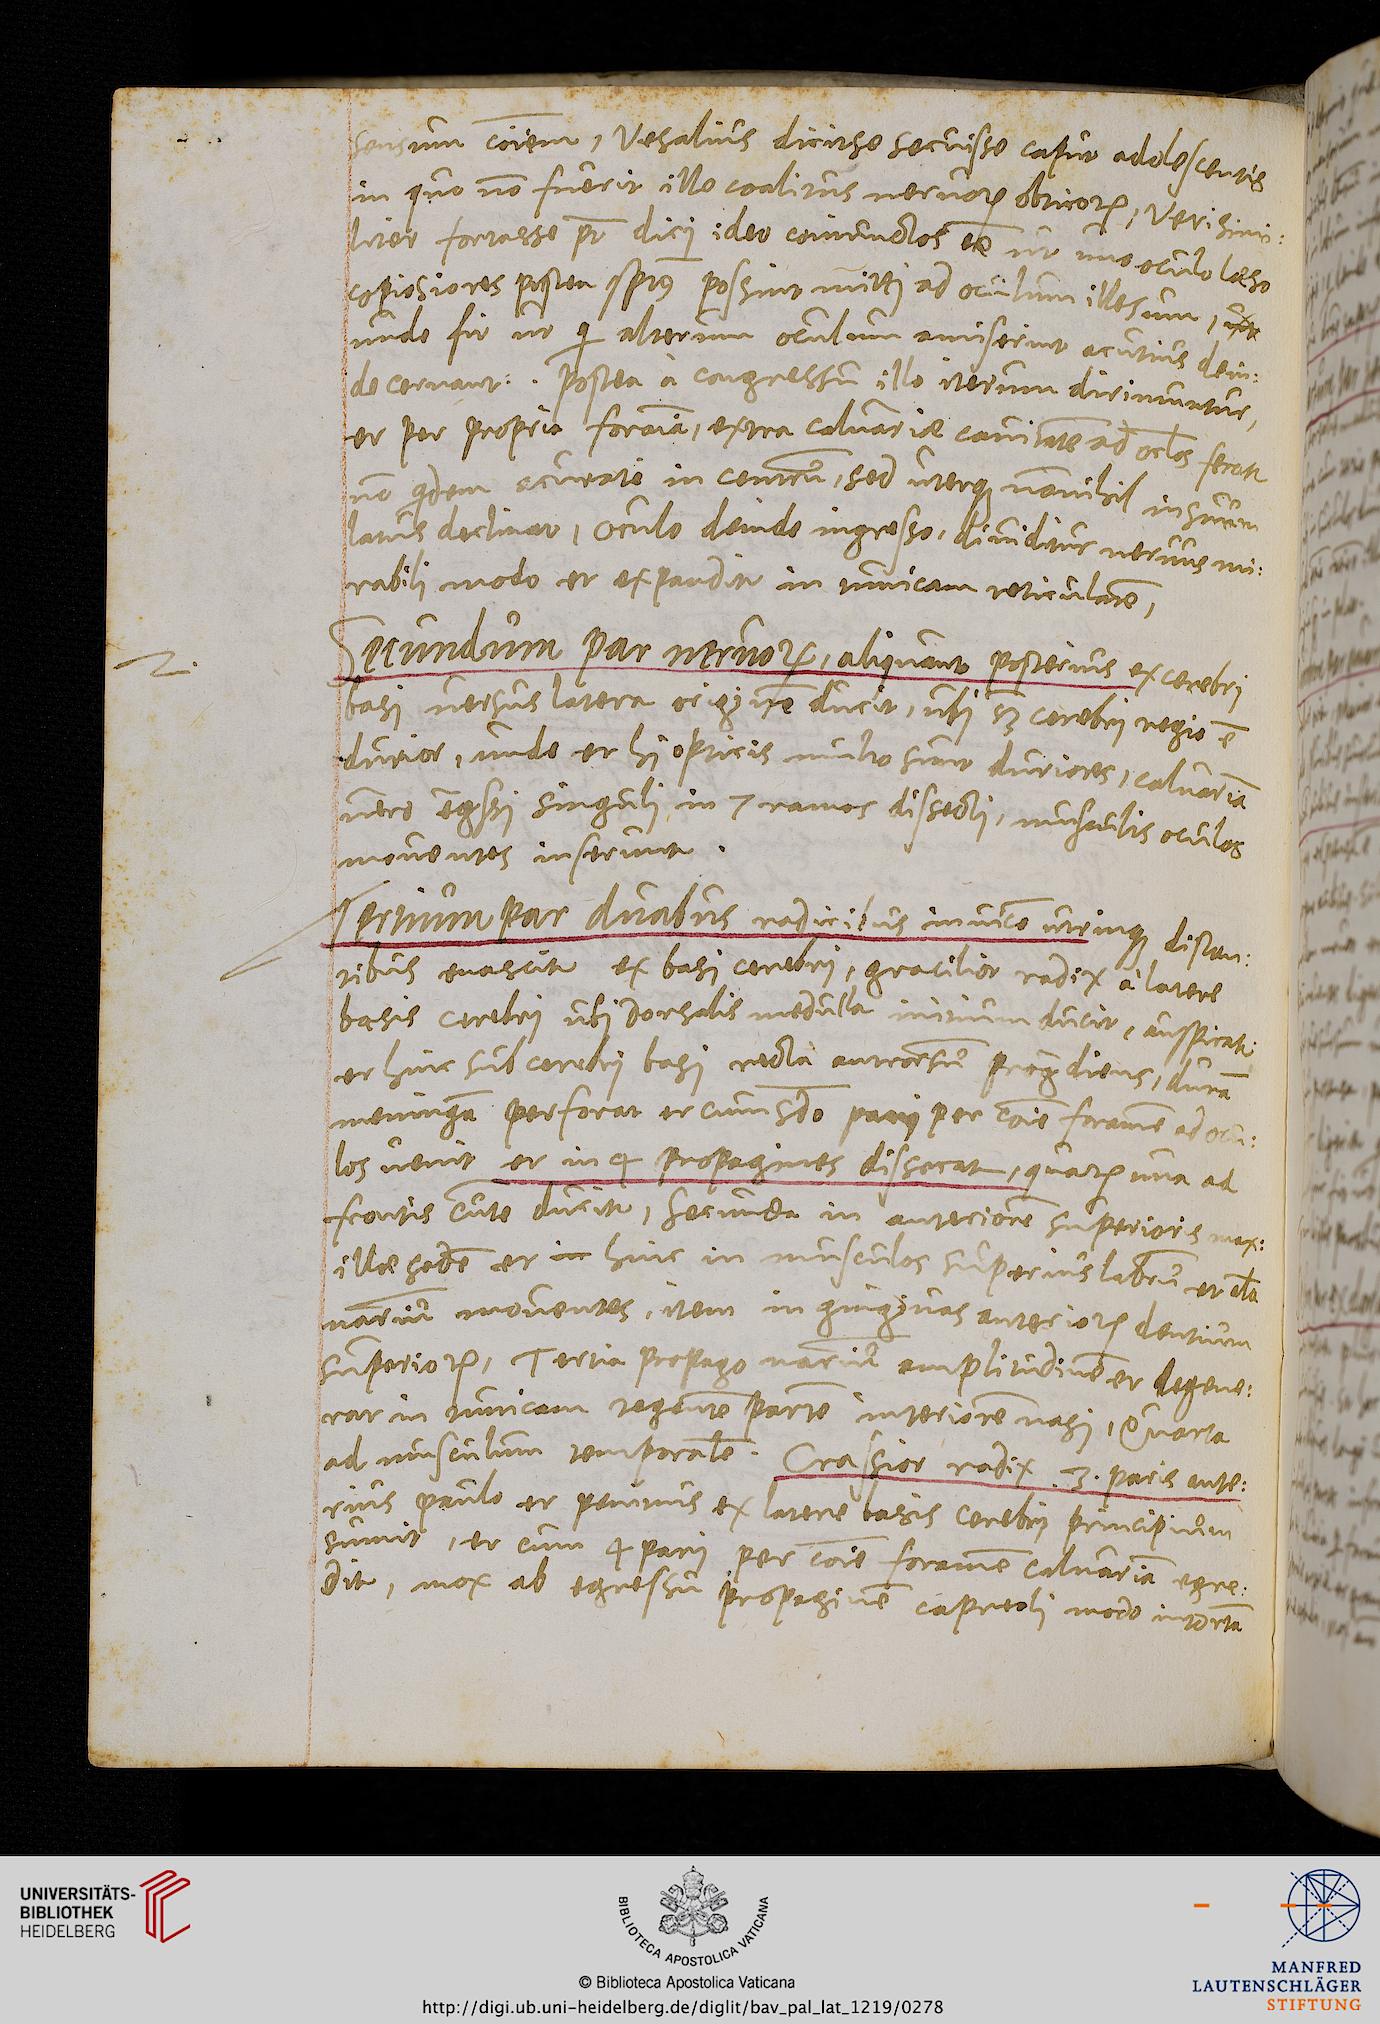 sensum coiem, Vesalius dicit se secuisse caput adolescentis
in quo no fuerit ille coalitus neruoꝝ obticoꝝ, Verisimi:
liter fortasse pt dici ideo coniunctos ee ut uno oculo laeso
copiosiores postea spus possint mitti ad oculum illesum,
unde fit ut qi alterum oculum amiserint acutius dein:
de cernant. Postea a congressu illo iterum dirimuntur,
et per propria foraia, extra caluariae cauitate ad oclos ferūt
no qdem acurate in centru, sed uterq nonnihil in suum
latus declinat, Oculo deinde ingresso, diuiditur neruus mi:
rabili modo et expandit in tunicam reticularē,
2.
Secundum par neruoꝝ, aliquanto posterius ex cerebri
basi uersus latera originē ducit, ubi cerebri regio ē
durior, unde et hi opticis multo sunt duriores, caluariā
uero egssi singuli in 7 ramos dissecti, musculis oculos
mouentes inserunt.
Tertium par duabus radicibus inuice utrinq distan:
tibus enascit ex basi cerebri, gracilior radix a latere
basis cerebri ubi dorsalis medulla initium ducit, auspicat
et hinc sub cerebri basi recta antrorsū progdiens, durā
meningā perforat et cum sdo pari per coie foramē ad ocu:
los uenit et in 4 propagines dissecat, quaꝝ una ad
frontis cutē ducit, secunda in anteriorē superioris max:
illae sedē et in hinc in musculos superius labrū et ala
nariū mouentes, item in gingiuas anterioꝝ dentium
superioꝝ, Tertia propago nariū amplitudinē et degene:
rat in tunicam tegentē partē interiorē nasi, Quarta
ad musculum temporalē. Crassior radix .3. paris ante:
rius paulo et penitius ex latere basis cerebri principium
sumit, et cum 4 pari per coie foramē caluariā egre:
dit, mox ab egressu propaginē capreoli modo intortā
UNIVERSITÄTS-
BIBLIOTHEK
HEIDELBERG
BIBLIOTECA APOSTOLICA VATICANA
© Biblioteca Apostolica Vaticana
http://digi.ub.uni-heidelberg.de/diglit/bav_pal_lat_1219/0278
MANFRED
LAUTENSCHLÄGER
STIFTUNG